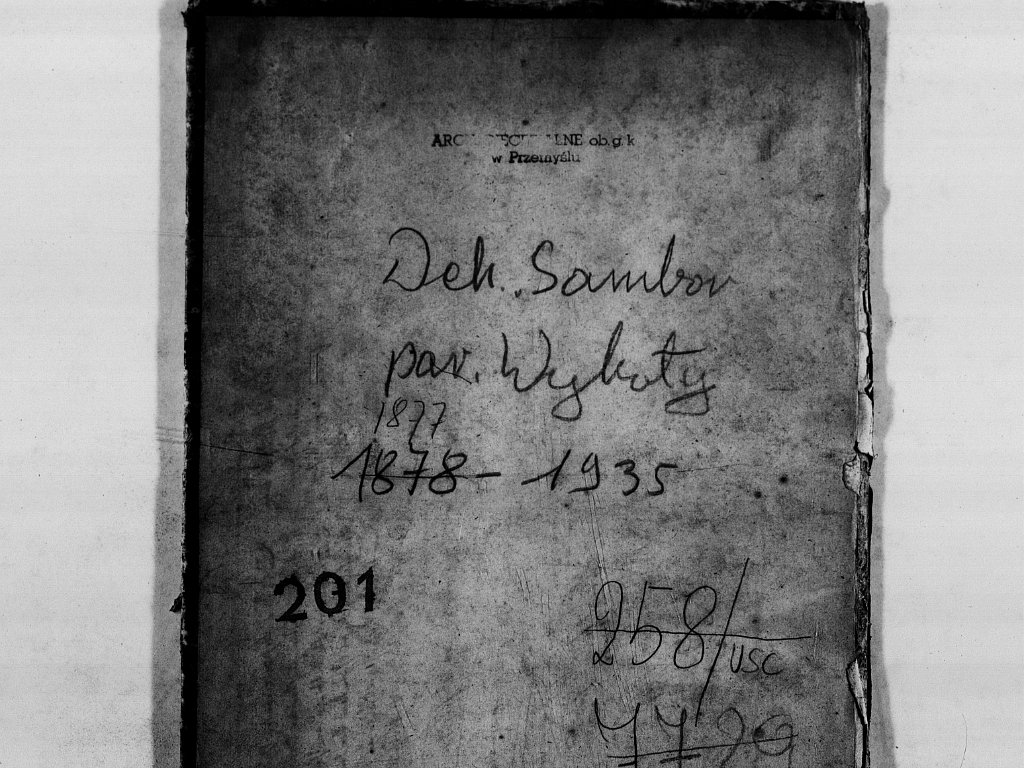 ob.g.k
w Przemyślu
Dek. Sambor
par. Wykoty
1877
1878 - 1935
201
258/USC
7729